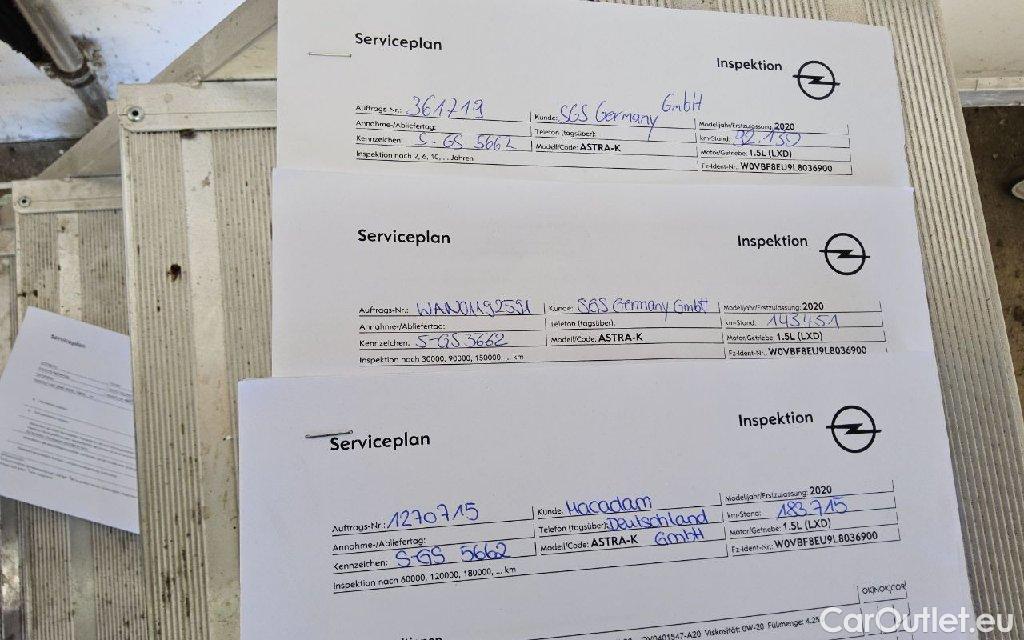 Serviceplan
Inspektion
Auftrags-Nr.: 361719
Kunde: SGS Germany GmbH
Modelljahr/Erstzulassung: 2020
Annahme-/Abliefertag:
Telefon (tagsüber):
km-Stand: 92.150
Kennzeichen S-GS 5662
Modell/Code: ASTRA-K
Motor/Getriebe: 1.5L (LXD)
Inspektion nach 2, 6, 10, ... Jahren
Fz-Ident-Nr.: W0VBF8EU9L8036900
Serviceplan
Inspektion
Auftrags-Nr.:
Kunde: SGS Germany GmbH
Modelljahr/Erstzulassung: 2020
Annahme-/Abliefertag:
Telefon (tagsüber):
km-Stand: 143451
Kennzeichen: S-GS 5662
Modell/Code: ASTRA-K
Motor/Getriebe: 1.5L (LXD)
Inspektion nach 30000, 90000, 150000, ... km
Fz-Ident-Nr.: W0VBF8EU9L8036900
Serviceplan
Inspektion
Auftrags-Nr.: 1270715
Kunde: Macadam
Modelljahr/Erstzulassung: 2020
Annahme-/Abliefertag:
Telefon (tagsüber): Deutschland
km-Stand: 183.715
Kennzeichen: S-GS 5662
Modell/Code: ASTRA-K GmbH
Motor/Getriebe: 1.5L (LXD)
Inspektion nach 60000, 120000, 180000, ... km
Fz-Ident-Nr.: W0VBF8EU9L8036900
Viskosität: 0W-20 Füllmenge:
Serviceplan
CarOutlet.eu